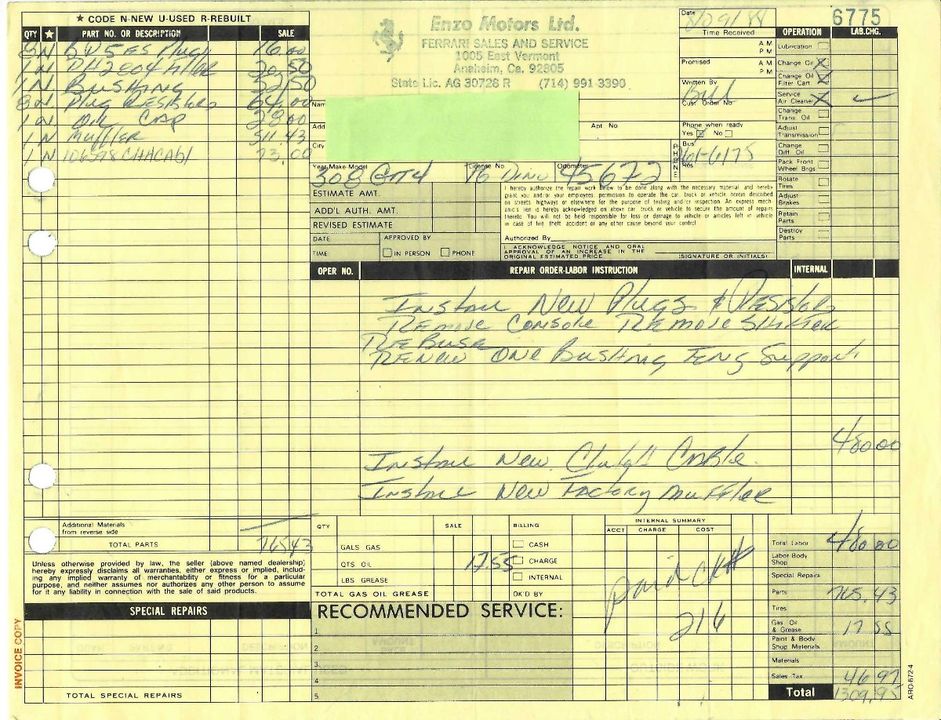 ★ CODE N-NEW U-USED R-REBUILT
QTY ★ PART NO. OR DESCRIPTION SALE
8 N BW5ES Plugs 16.00
1 N PH2804 Filter 20.50
1 N Bushing 32.50
8 N Plug Resistors 64.00
1 N Oil Cap 28.00
1 N Muffler 511.43
1 N 106598 73.00
Additional Materials
from reverse side
TOTAL PARTS 765.43
Unless otherwise provided by law, the seller (above named dealership)
hereby expressly disclaims all warranties, either express or implied, includ-
ing any implied warranty of merchantability or fitness for a particular
purpose, and neither assumes nor authorizes any other person to assume
for it any liability in connection with the sale of said products.
SPECIAL REPAIRS
TOTAL SPECIAL REPAIRS
INVOICE COPY
Enzo Motors Ltd.
FERRARI SALES AND SERVICE
1005 East Vermont
Anaheim, Ca. 92805
State Lic. AG 30726 R (714) 991-3390
Name
Add
Apt. No
City
Year-Make Model License No. Odometer
308 GT4 76 45672
Date
6775
Time Received
A M
P M
Promised
A M
P M
Written By
Bill
Cust. Order No.
Phone when ready
Yes No
PHONE
Bus
Res
61-6175
OPERATION LAB.CHG.
Lubrication
Change Oil
Change Oil
Filter Cart.
Service
Air Cleaner
Change
Trans. Oil
Adjust
Transmission
Change
Diff. Oil
Pack Front
Wheel Brgs
Rotate
Tires
Adjust
Brakes
Retain
Parts
Destroy
Parts
ESTIMATE AMT.
ADD'L AUTH. AMT.
REVISED ESTIMATE
DATE APPROVED BY
TIME IN PERSON PHONE
I hereby authorize the repair work below to be done along with the necessary material and hereby
grant you and/or your employees permission to operate the car, truck or vehicle herein described
on streets, highways or elsewhere for the purpose of testing and/or inspection. An express mech-
anic's lien is hereby acknowledged on above car, truck or vehicle to secure the amount of repairs
thereto. You will not be held responsible for loss or damage to vehicle or articles left in vehicle
in case of fire, theft, accident or any other cause beyond your control.
Authorized By
I ACKNOWLEDGE NOTICE AND ORAL
APPROVAL OF AN INCREASE IN THE
ORIGINAL ESTIMATED PRICE.
(SIGNATURE OR INITIALS)
OPER NO. REPAIR ORDER-LABOR INSTRUCTION INTERNAL
Install New Plugs & Resistors
Remove Console Remove Shifter
ReBush
Renew One Bushing Eng Support
480.00
Install New Clutch Cable
Install New Factory Muffler
QTY SALE BILLING
GALS GAS CASH
QTS OIL 17.55 CHARGE
LBS GREASE INTERNAL
TOTAL GAS OIL GREASE OK'D BY
INTERNAL SUMMARY
ACCT CHARGE COST
paid ck#
216
RECOMMENDED SERVICE:
1
2
3
4
5
Total Labor 480.00
Labor Body
Shop
Special Repairs
Parts 765.43
Tires
Gas Oil
& Grease 17.55
Paint & Body
Shop Materials
Materials
Sales Tax 46.97
Total 1309.95
ARO-672-4